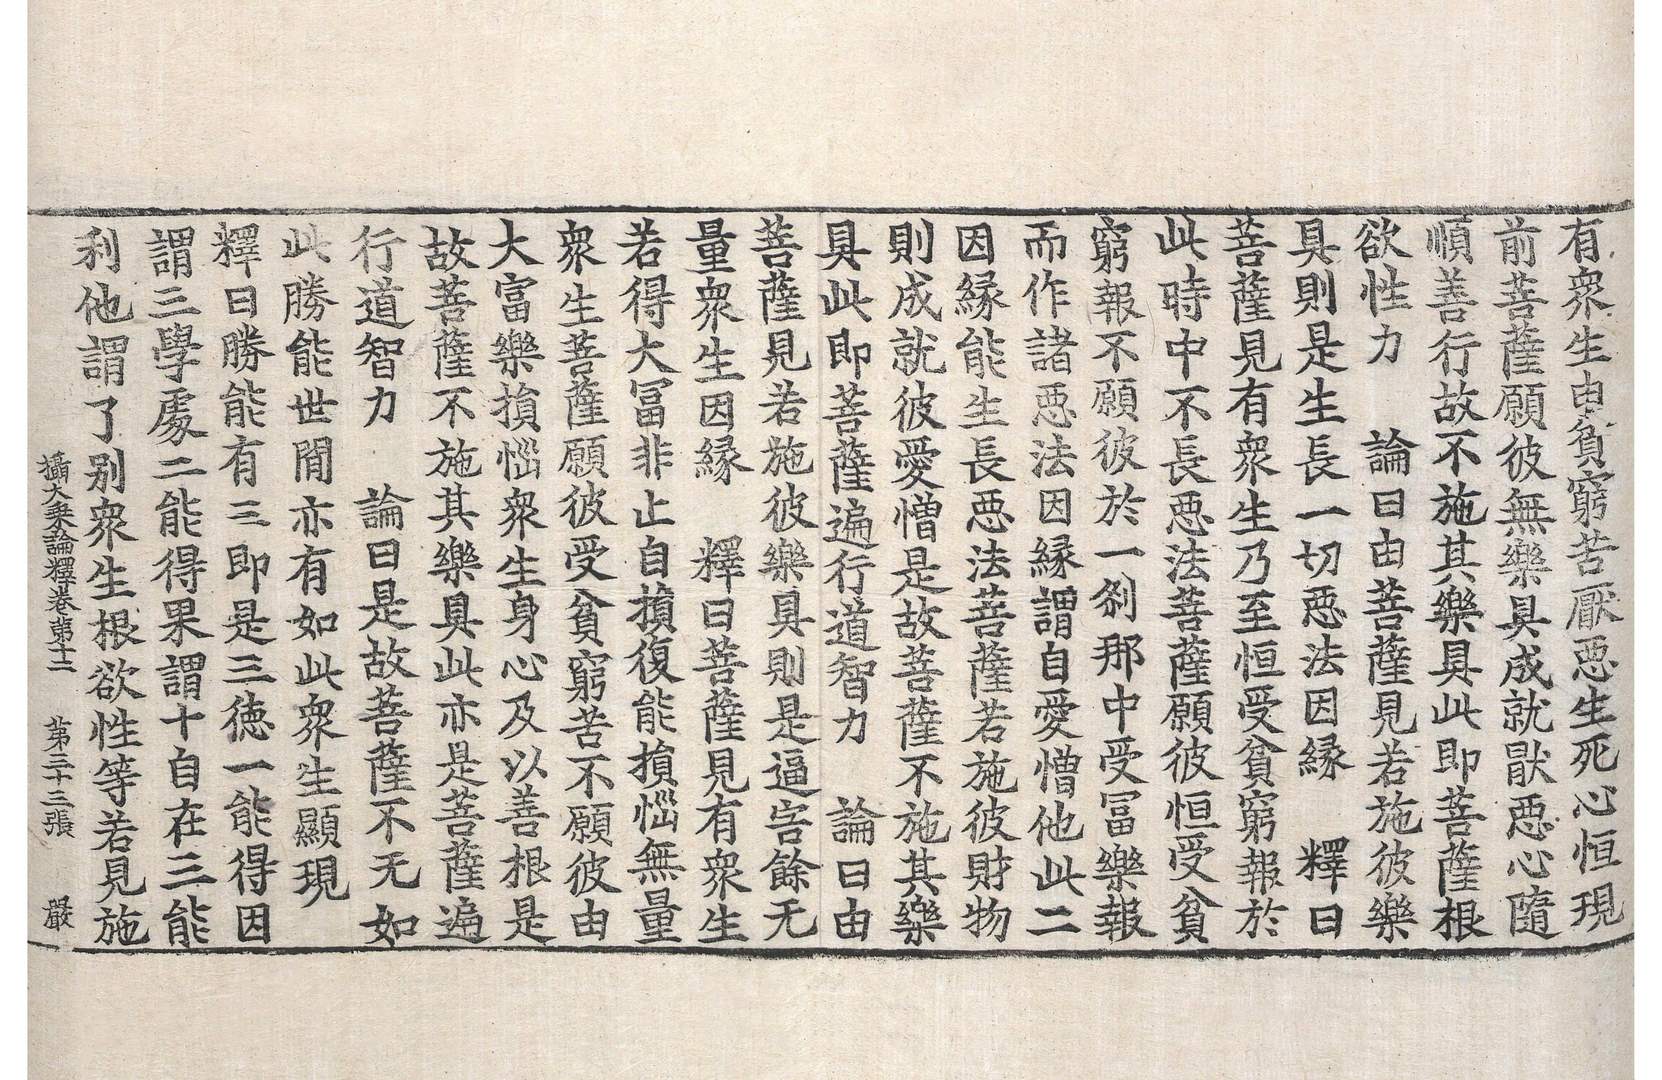 有衆生由貧窮苦厭惡生死心恒現
前菩薩願彼無樂具成就厭惡心隨
順善行故不施其樂具此即菩薩根
欲性力　論曰由菩薩見若施彼樂
具則是生長一切惡法因緣　釋曰
菩薩見有衆生乃至恒受貧窮報於
此時中不長惡法菩薩願彼恒受貧
窮報不願彼於一剎那中受冨樂報
而作諸惡法因縁謂自愛憎他此二
因縁能生長惡法菩薩若施彼財物
則成就彼愛憎是故菩薩不施其樂
具此即菩薩遍行道智力　論曰由
菩薩見若施彼樂具則是逼害餘无
量衆生因縁　釋曰菩薩見有衆生
若得大冨非止自損復能損惱無量
衆生菩薩願彼受貧窮苦不願彼由
大富樂損惱衆生身心及以善根是
故菩薩不施其樂具此亦是菩薩遍
行道智力　論曰是故菩薩不无如
此勝能世間亦有如此衆生顯現
釋曰勝能有三即是三德一能得因
謂三學處二能得果謂十自在三能
利他謂了別衆生根欲性等若見施
攝大乗論釋卷第十二　第三十三張　嚴